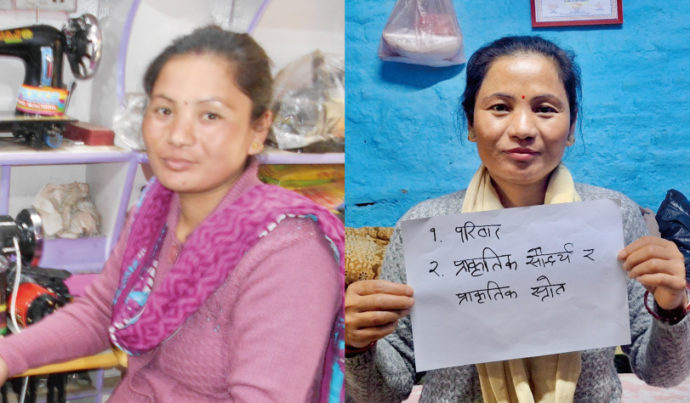 १. परिवार
२. प्राकृतिक सौन्दर्य र
प्राकृतिक स्रोत